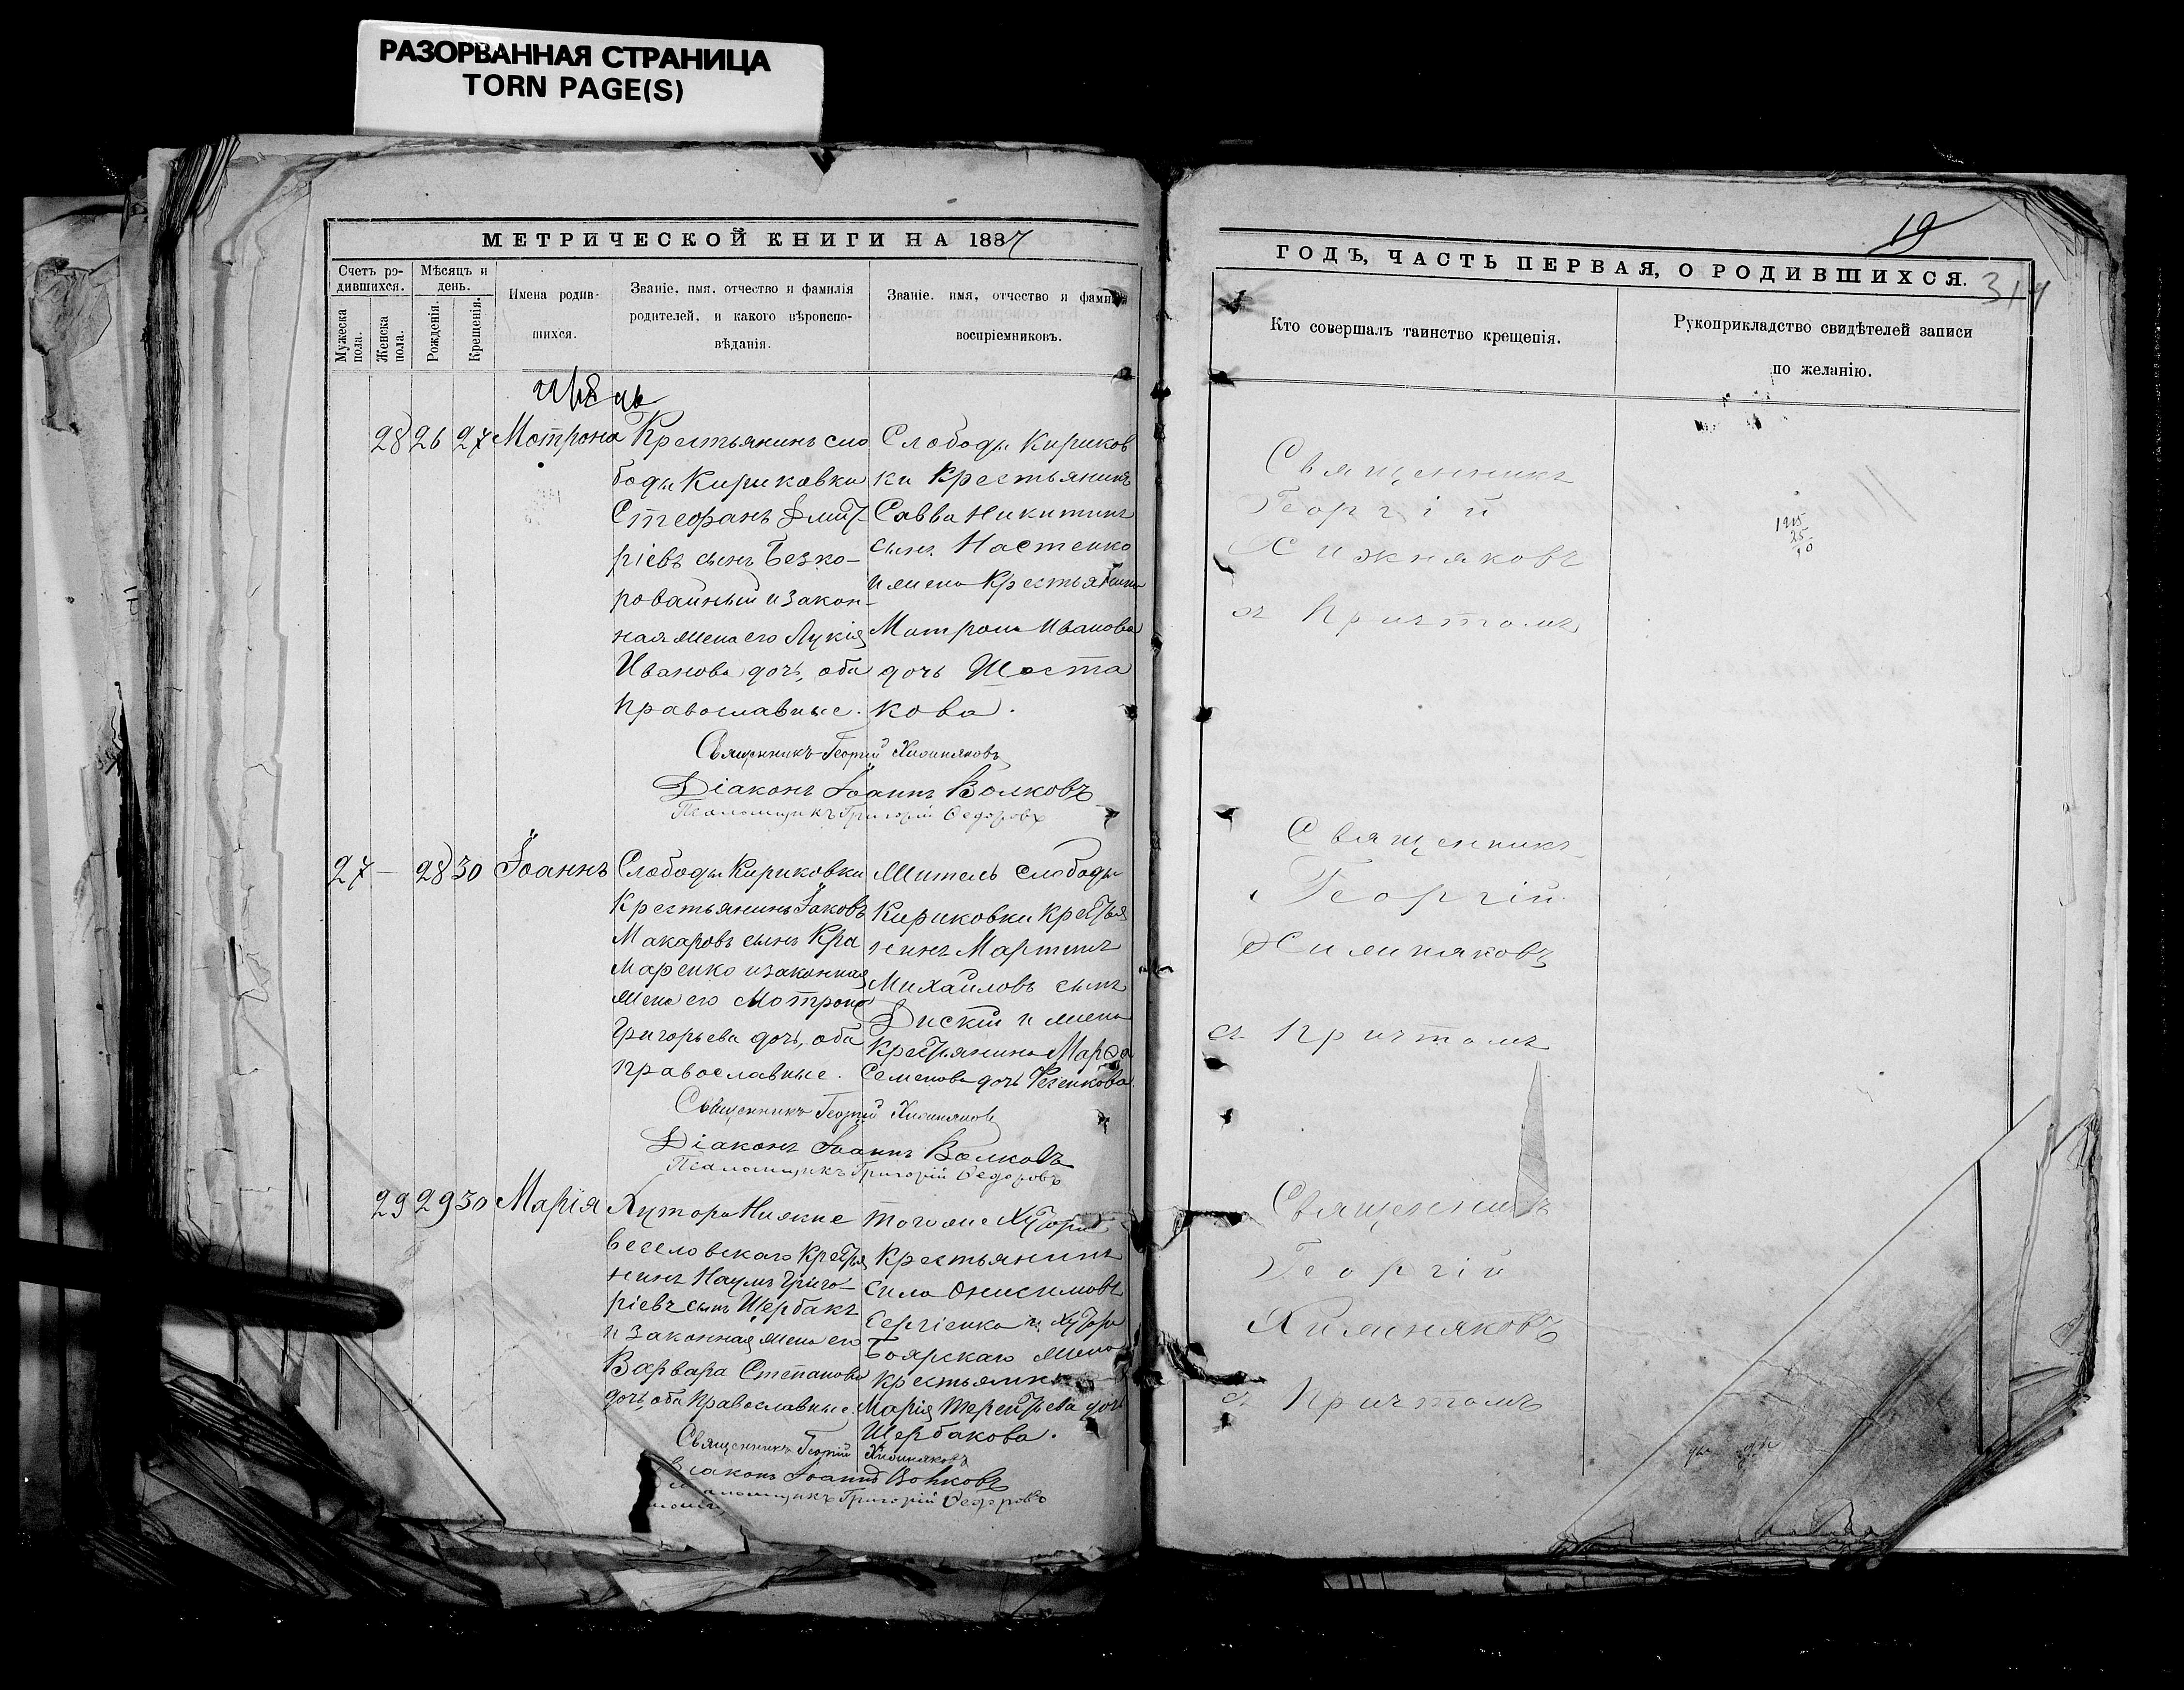 РАЗОРВАННАЯ СТРАНИЦА
TORN PAGE(S)
МЕТРИЧЕСКОЙ КНИГИ НА 1887
Счетъ ро-
дившихся.
Мѣсяцъ и
день.
Мужеска
пола.
Женска
пола.
Рожденія.
Крещенія.
Имена родив-
шихся.
Званіе, имя, отчество и фамилія
родителей, и какого вѣроиспо-
вѣданія.
Званіе, имя, отчество и фамилія
воспріемниковъ.
28 26 27 Мотрона
Крестьянинъ сло
боды Кириковки
Стефанъ Дмит-
ріевъ сынъ Безко-
ровайный и закон-
ная жена его Лукія
Иванова дочь, оба
православные.
Слободы Кириков
ки Крестьянинъ
Савва Никитинъ
сынъ Настенко
и жена Крестьянина
Мотрона Иванова
дочь Шоста
кова.
Священникъ Георгій Хижняковъ
Діаконъ Іоаннъ Волковъ
Псаломщикъ Григорій Ѳедоровъ
27 — 28 30 Іоаннъ
Слободы Кириковки
Крестьянинъ Іаковъ
Макаровъ сынъ Кра
маренко и законная
жена его Мотрона
Григорьева дочь, оба
православные.
Житель слободы
Кириковки Крестья
нинъ Мартинъ
Михайловъ сынъ
и жена
Крестьянина Марѳа
Семенова дочь
Священникъ Георгій Хижняковъ
Діаконъ Іоаннъ Волковъ
Псаломщикъ Григорій Ѳедоровъ
29 29 30 Марія
Хутора Нижне
веселовскаго Крестья
нинъ Наумъ Григо-
ріевъ сынъ Щербакъ
и законная жена его
Варвара Степанова
дочь, оба православные.
того же Хутора
Крестьянинъ
Сила Онисимовъ
Сергіенко и Хутора
Боярскаго жена
Крестьянина
Марія Терентьева дочь
Щербакова.
Священникъ Георгій Хижняковъ
Діаконъ Іоаннъ Волковъ
Псаломщикъ Григорій Ѳедоровъ
19
ГОДЪ, ЧАСТЬ ПЕРВАЯ, О РОДИВШИХСЯ.
314
Кто совершалъ таинство крещенія.
Рукоприкладство свидѣтелей записи
по желанію.
Священникъ
Георгій
Хижняковъ
съ Причтомъ
Священникъ
Георгій
Хижняковъ
съ Причтомъ
Священникъ
Георгій
Хижняковъ
съ Причтомъ